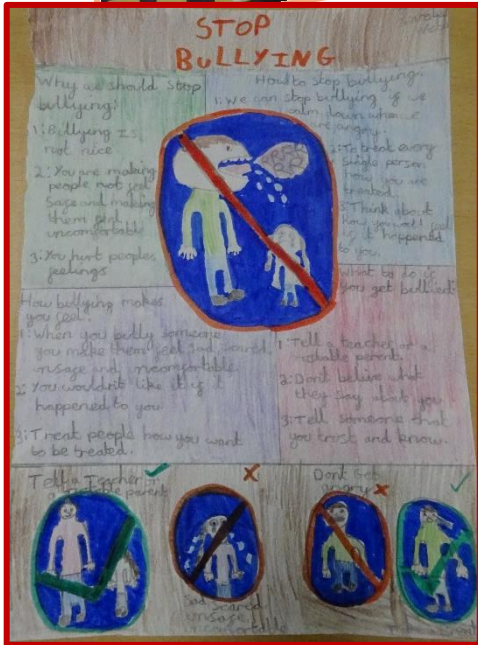 STOP
BULLYING
Why we should stop
bullying:
1: Bullying is
not nice
2: You are making
people not feel
sage and making
them feel
uncomfortable
3: You hurt peoples
feelings
How to stop bullying:
1: We can stop bullying if we
calm down when we
are angry
2: To treat every
single person
how you are
treated.
3: Think about
how you will feel
if it happened
to you.
How bullying makes
you feel:
1: When you bully someone
you make them feel sad, scared,
unsage and uncomfortable
2: You wouldn't like it if it
happened to you
3: Treat people how you want
to be treated.
What to do if
you get bullied:
1: Tell a teacher or a
parent.
2: Dont believe what
they say about you
3: Tell someone that
you trust and know.
Tell a teacher or
a parent
Sad, scared
unsage
uncomfortable
Dont get
angry